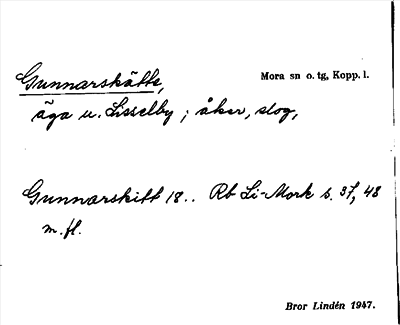 Gunnarskätte, Mora sn o. tg, Kopp. l.
äga u. Lisselby ; åker, slog,
Gunnarskitt 18.. Rb Li-Mork s. 37, 48
m. fl.
Bror Lindén 1947.